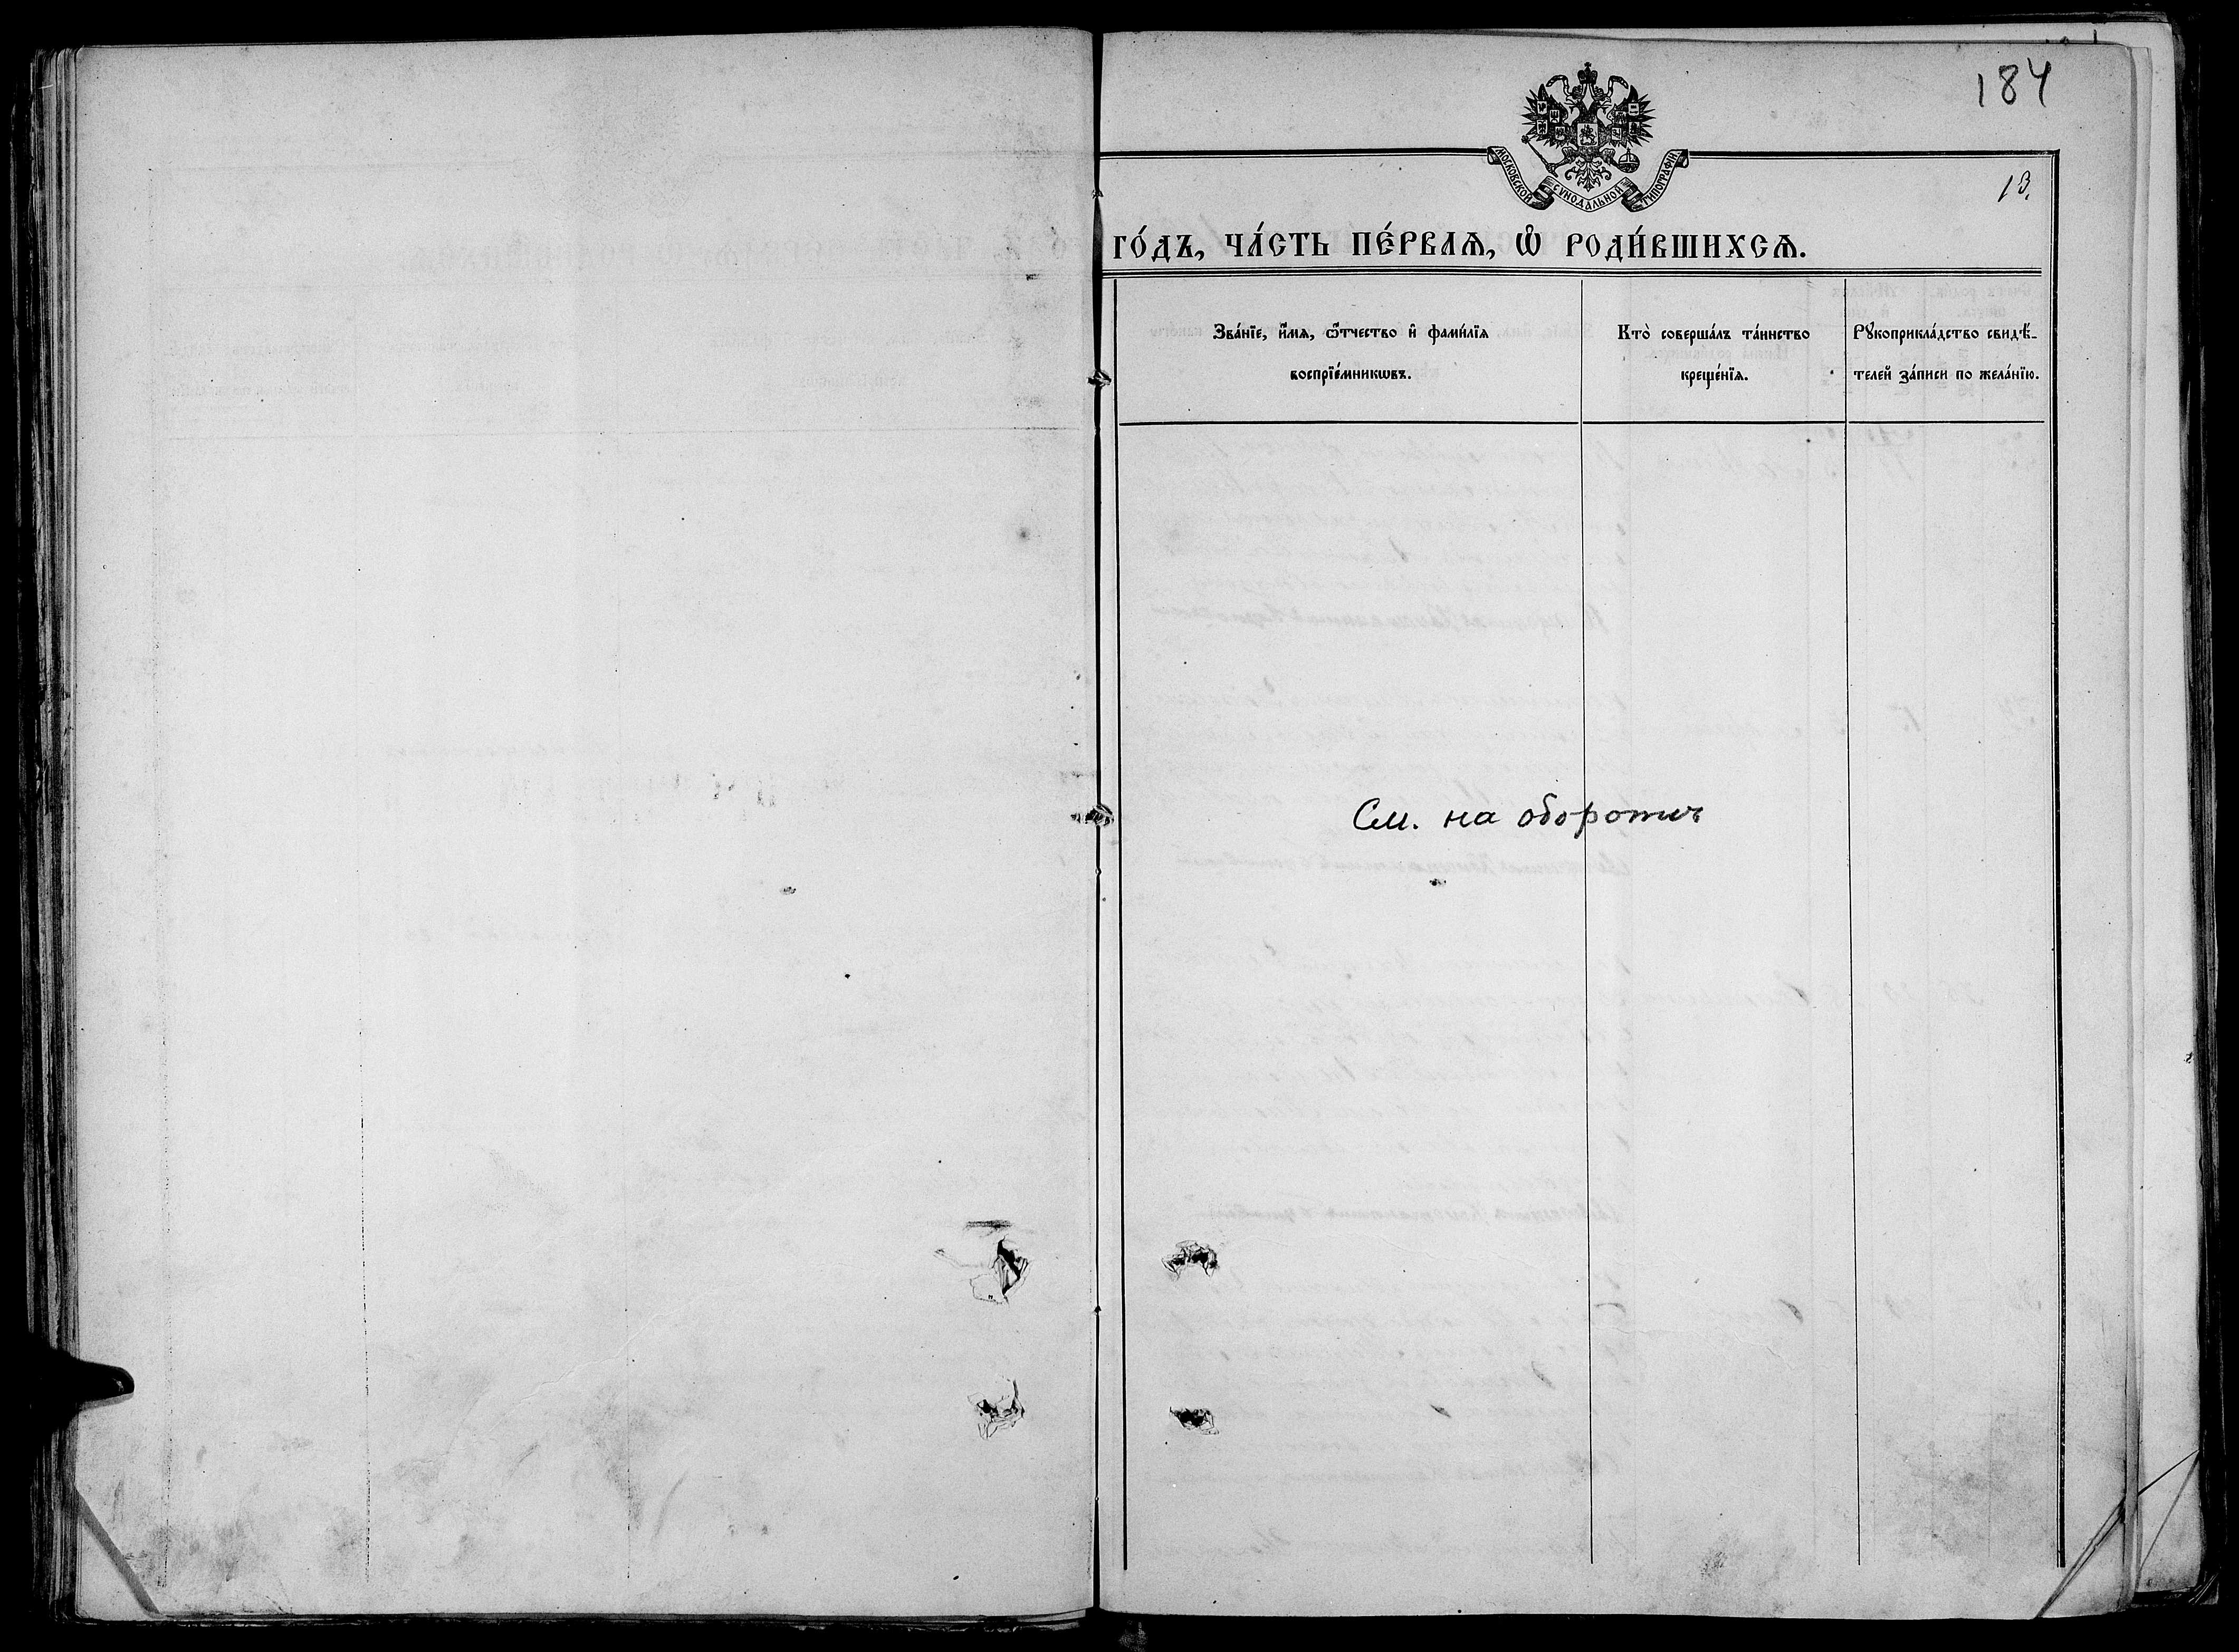 184
МОСКОВСКОЙ СѴНОДАЛЬНОЙ ТИПОГРАФІИ
13.
ГО́ДЪ, ЧА́СТЬ ПЕ́РВАѦ, Ѽ РОДИ́ВШИХСѦ.
Зва́нїе, и҆́мѧ, ѻ҆́тчество и҆ фами́лїѧ
воспрїе́мникѡвъ.
Кто̀ соверша́лъ та́инство
креще́нїѧ.
Рꙋкоприкла́дство свидѣ́-
телей за́писи по жела́нїю.
См. на оборотѣ